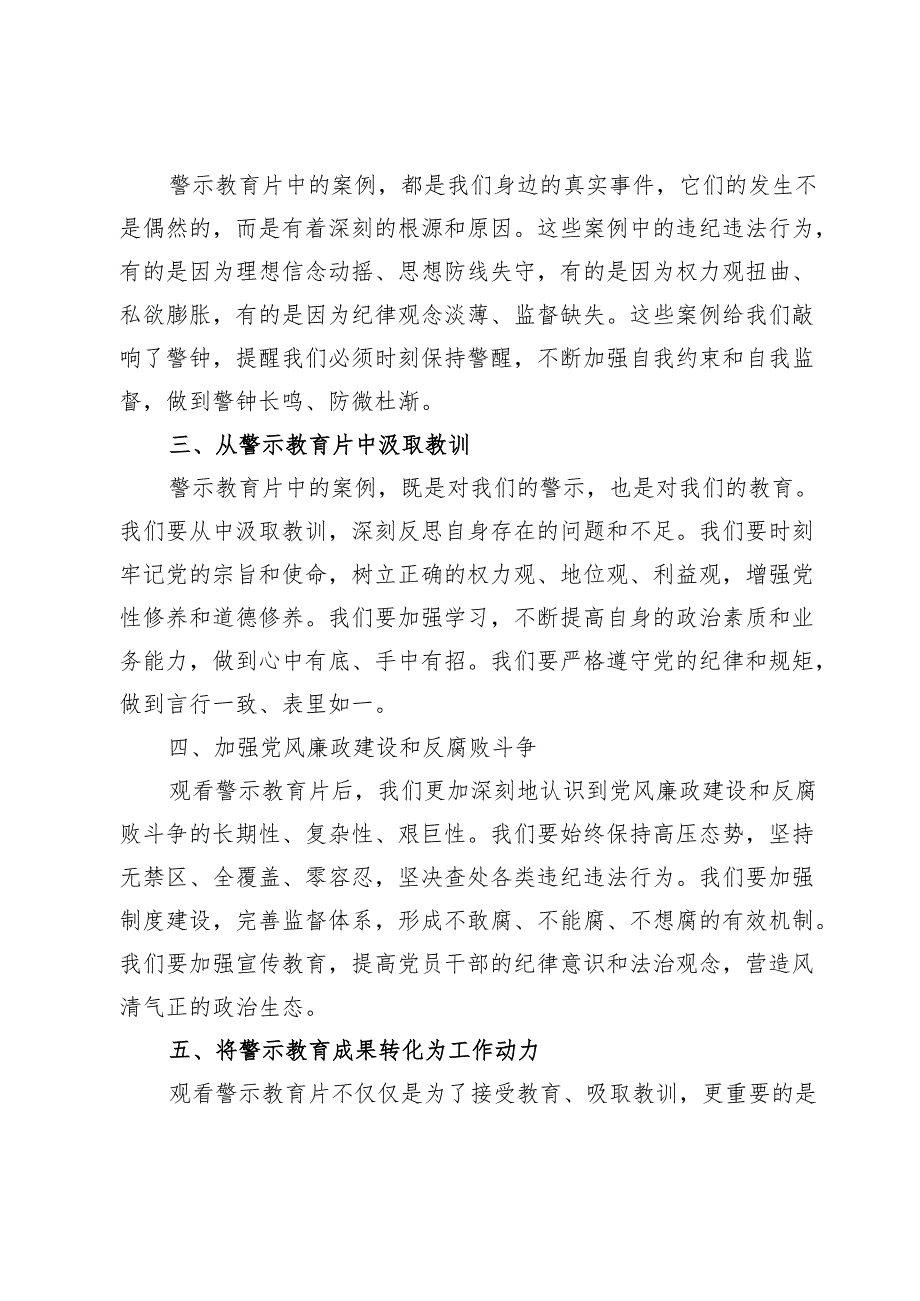 警示教育片中的案例，都是我们身边的真实事件，它们的发生不
是偶然的，而是有着深刻的根源和原因。这些案例中的违纪违法行为，
有的是因为理想信念动摇、思想防线失守，有的是因为权力观扭曲、
私欲膨胀，有的是因为纪律观念淡薄、监督缺失。这些案例给我们敲
响了警钟，提醒我们必须时刻保持警醒，不断加强自我约束和自我监
督，做到警钟长鸣、防微杜渐。
三、从警示教育片中汲取教训
警示教育片中的案例，既是对我们的警示，也是对我们的教育。
我们要从中汲取教训，深刻反思自身存在的问题和不足。我们要时刻
牢记党的宗旨和使命，树立正确的权力观、地位观、利益观，增强党
性修养和道德修养。我们要加强学习，不断提高自身的政治素质和业
务能力，做到心中有底、手中有招。我们要严格遵守党的纪律和规矩，
做到言行一致、表里如一。
四、加强党风廉政建设和反腐败斗争
观看警示教育片后，我们更加深刻地认识到党风廉政建设和反腐
败斗争的长期性、复杂性、艰巨性。我们要始终保持高压态势，坚持
无禁区、全覆盖、零容忍，坚决查处各类违纪违法行为。我们要加强
制度建设，完善监督体系，形成不敢腐、不能腐、不想腐的有效机制。
我们要加强宣传教育，提高党员干部的纪律意识和法治观念，营造风
清气正的政治生态。
五、将警示教育成果转化为工作动力
观看警示教育片不仅仅是为了接受教育、吸取教训，更重要的是